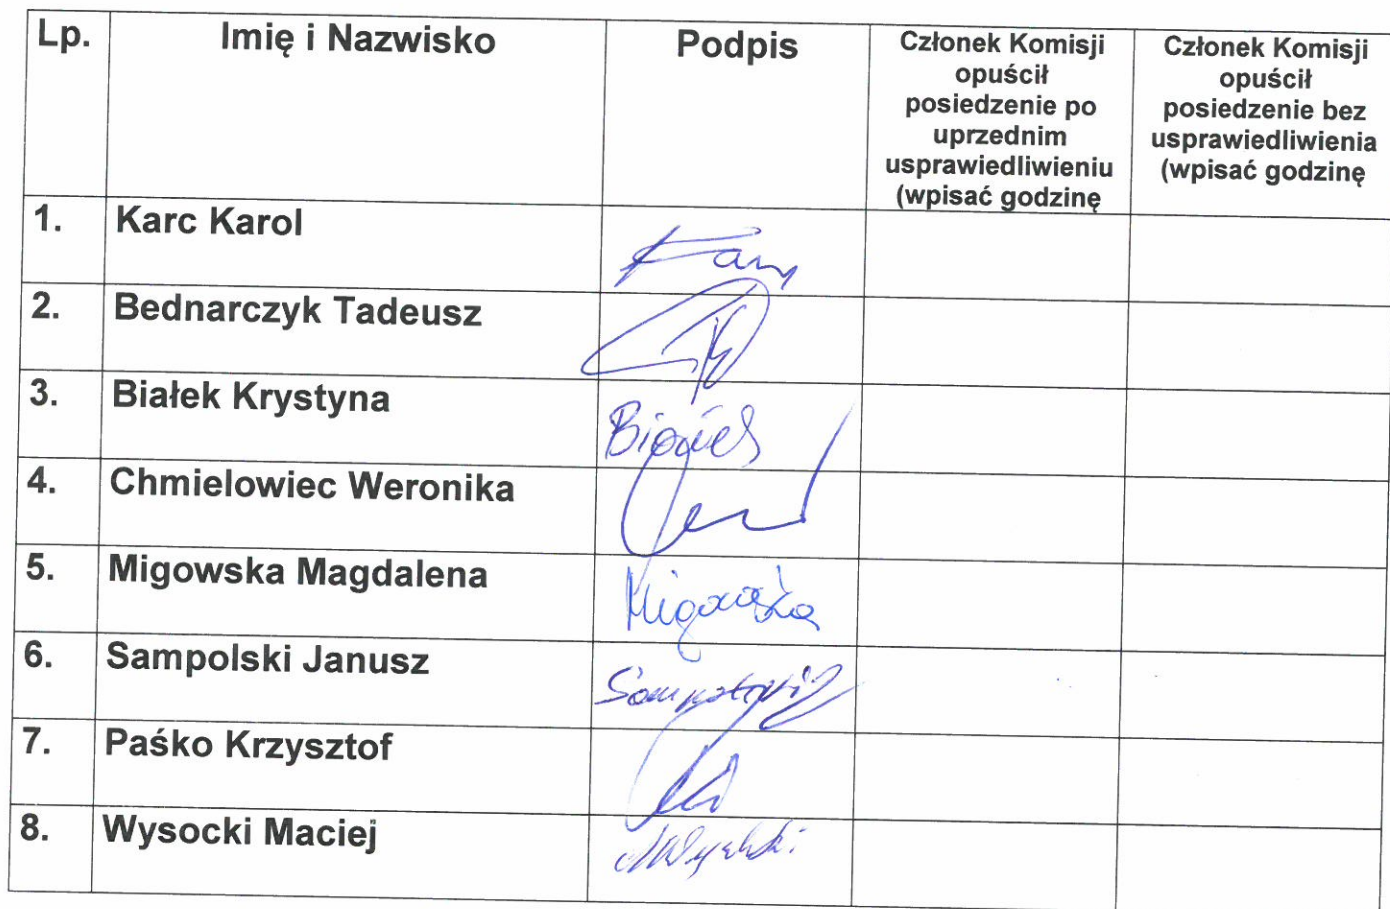 Lp.
Imię i Nazwisko
Podpis
Członek Komisji
opuścił
posiedzenie po
uprzednim
usprawiedliwieniu
(wpisać godzinę
Członek Komisji
opuścił
posiedzenie bez
usprawiedliwienia
(wpisać godzinę
1. Karc Karol
2. Bednarczyk Tadeusz
3. Białek Krystyna Białek
4. Chmielowiec Weronika
5. Migowska Magdalena Migowska
6. Sampolski Janusz Sampolski
7. Paśko Krzysztof
8. Wysocki Maciej